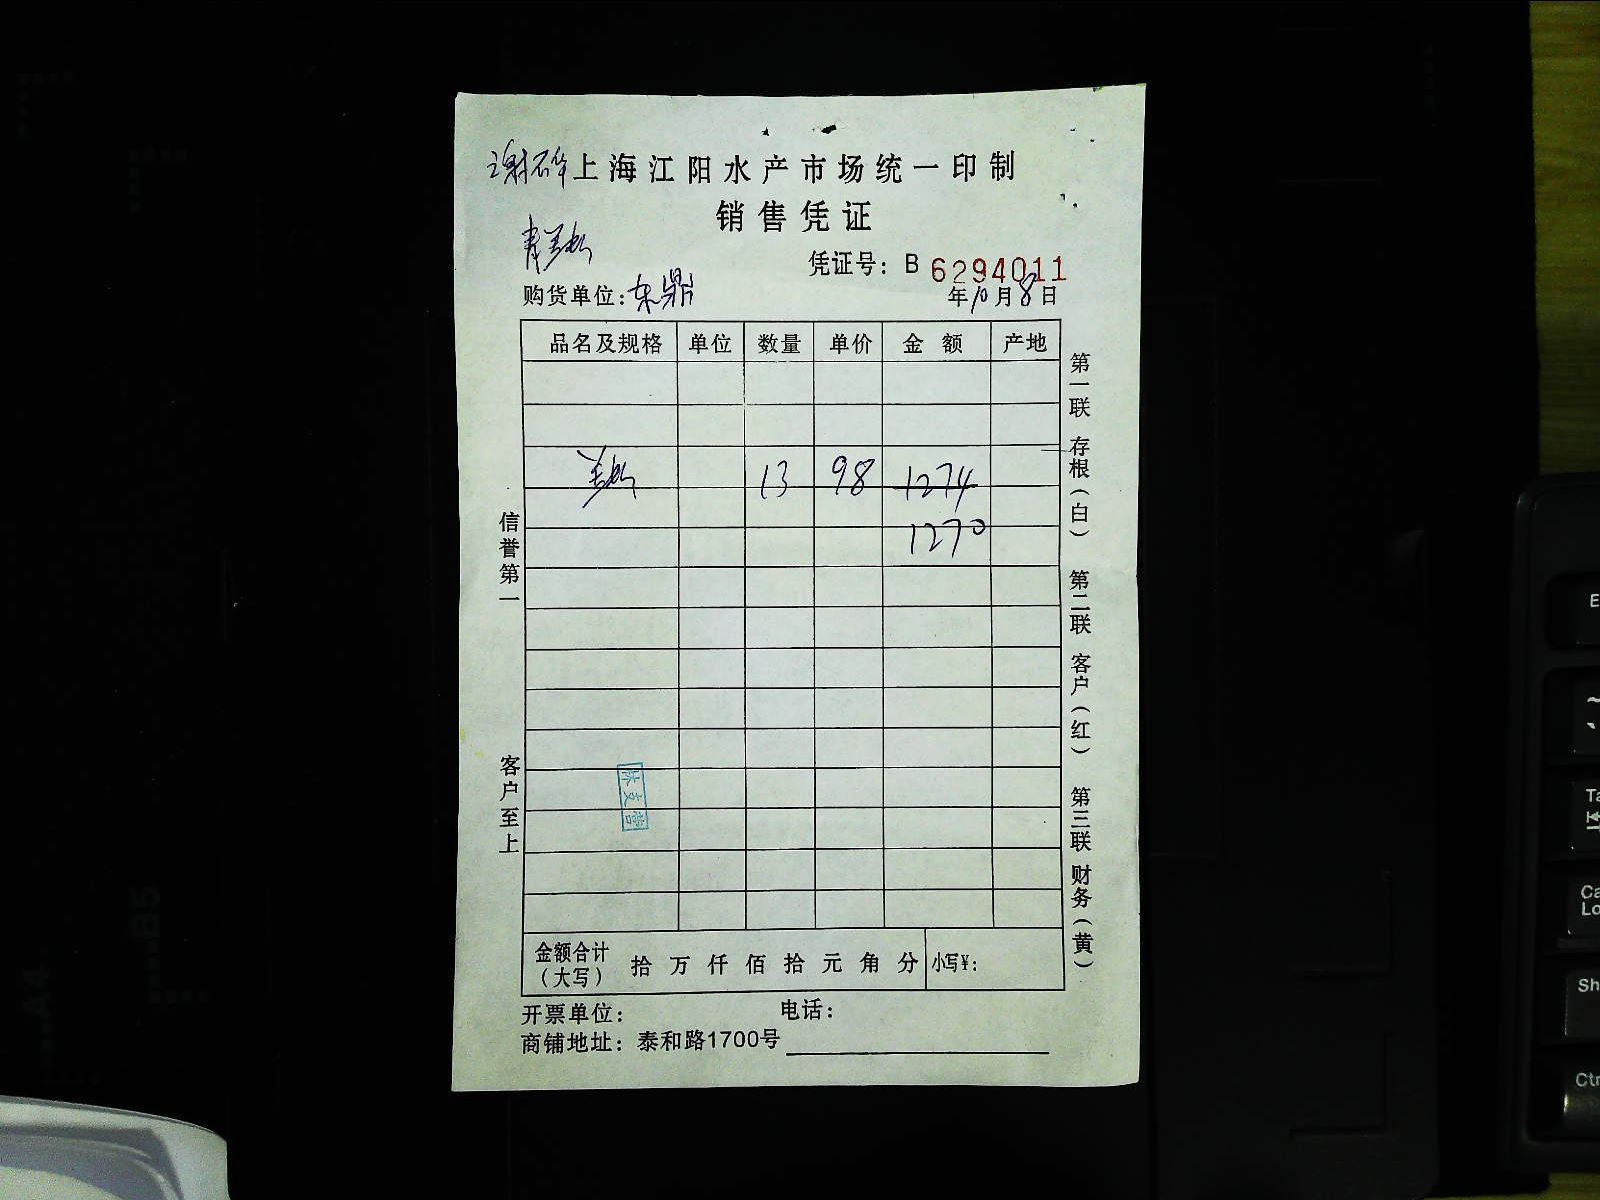 上海江阳水产市场统一印制
销售凭证
凭证号：B 6294011
购货单位：东鼎 年10月8日
品名及规格 单位 数量 单价 金额 产地
13 98 1274
1270
信誉第一
客户至上
第一联 存根（白） 第二联 客户（红） 第三联 财务（黄）
金额合计（大写） 拾 万 仟 佰 拾 元 角 分 小写¥：
开票单位： 电话：
商铺地址：泰和路1700号
B5
A4